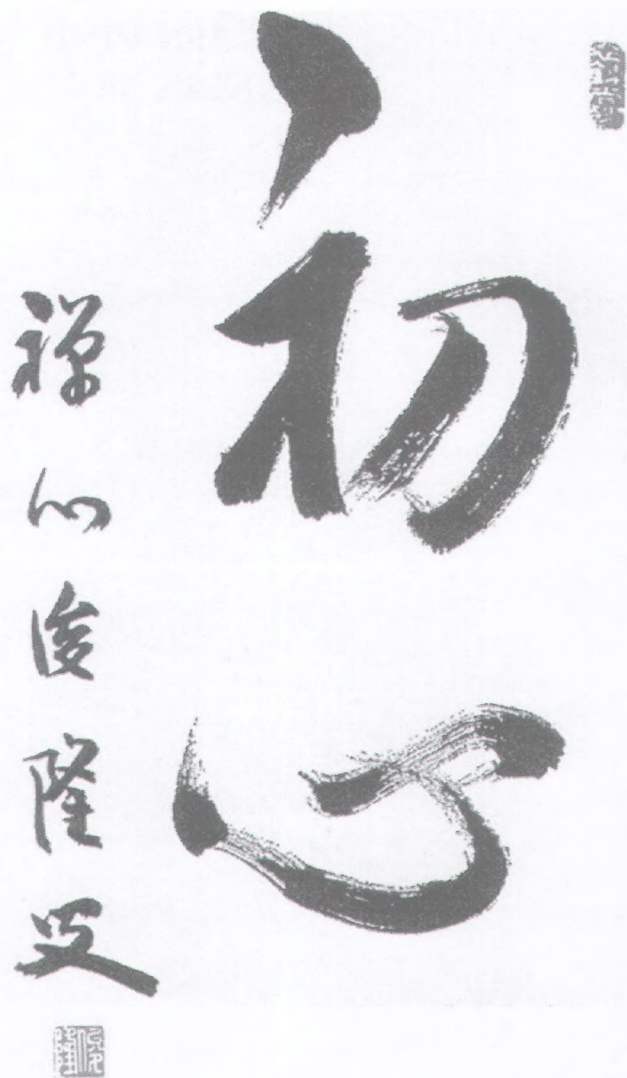 初心
禅心俊隆叟